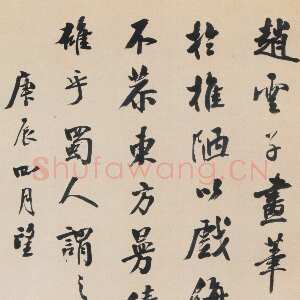 趙雲子畫筆
於推陋以戲侮
不恭東方曼倩
雄乎蜀人謂之
庚辰四月望
Shufawang.CN